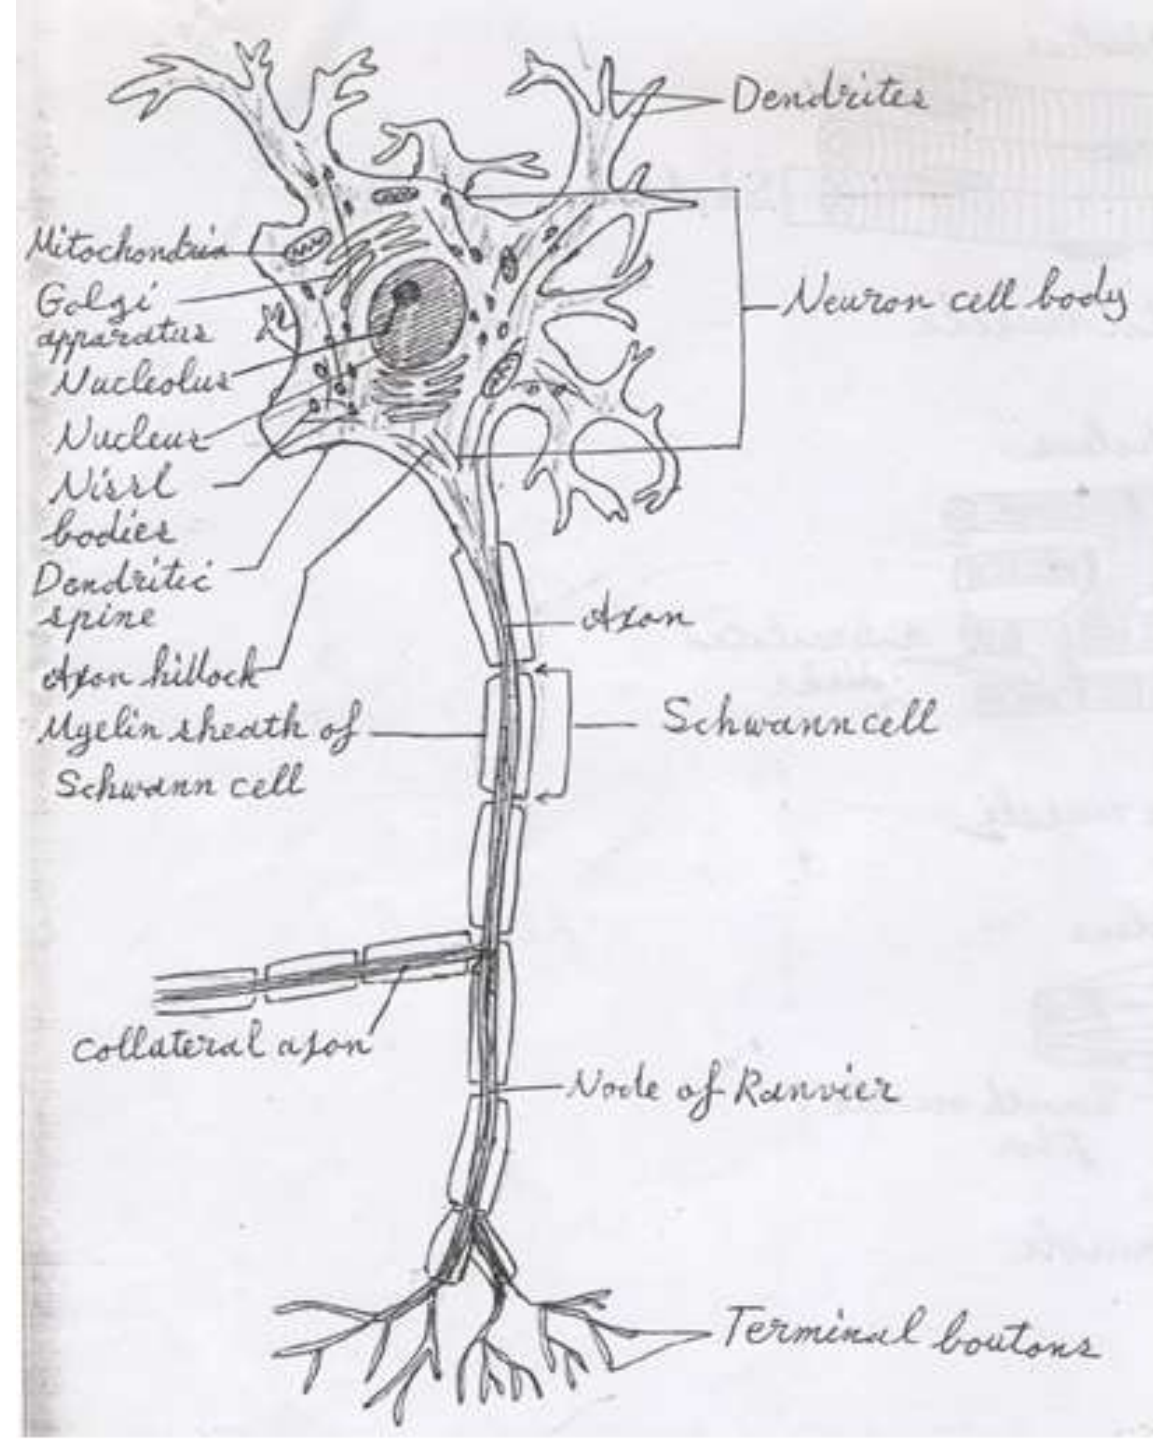 Dendrites
Mitochondria
Golgi
apparatus
Neuron cell body
Nucleolus
Nucleus
Nissl
bodies
Dendritic
spine
Axon
Axon hillock
Myelin sheath of
Schwann cell
Schwann cell
Collateral axon
Node of Ranvier
Terminal boutons